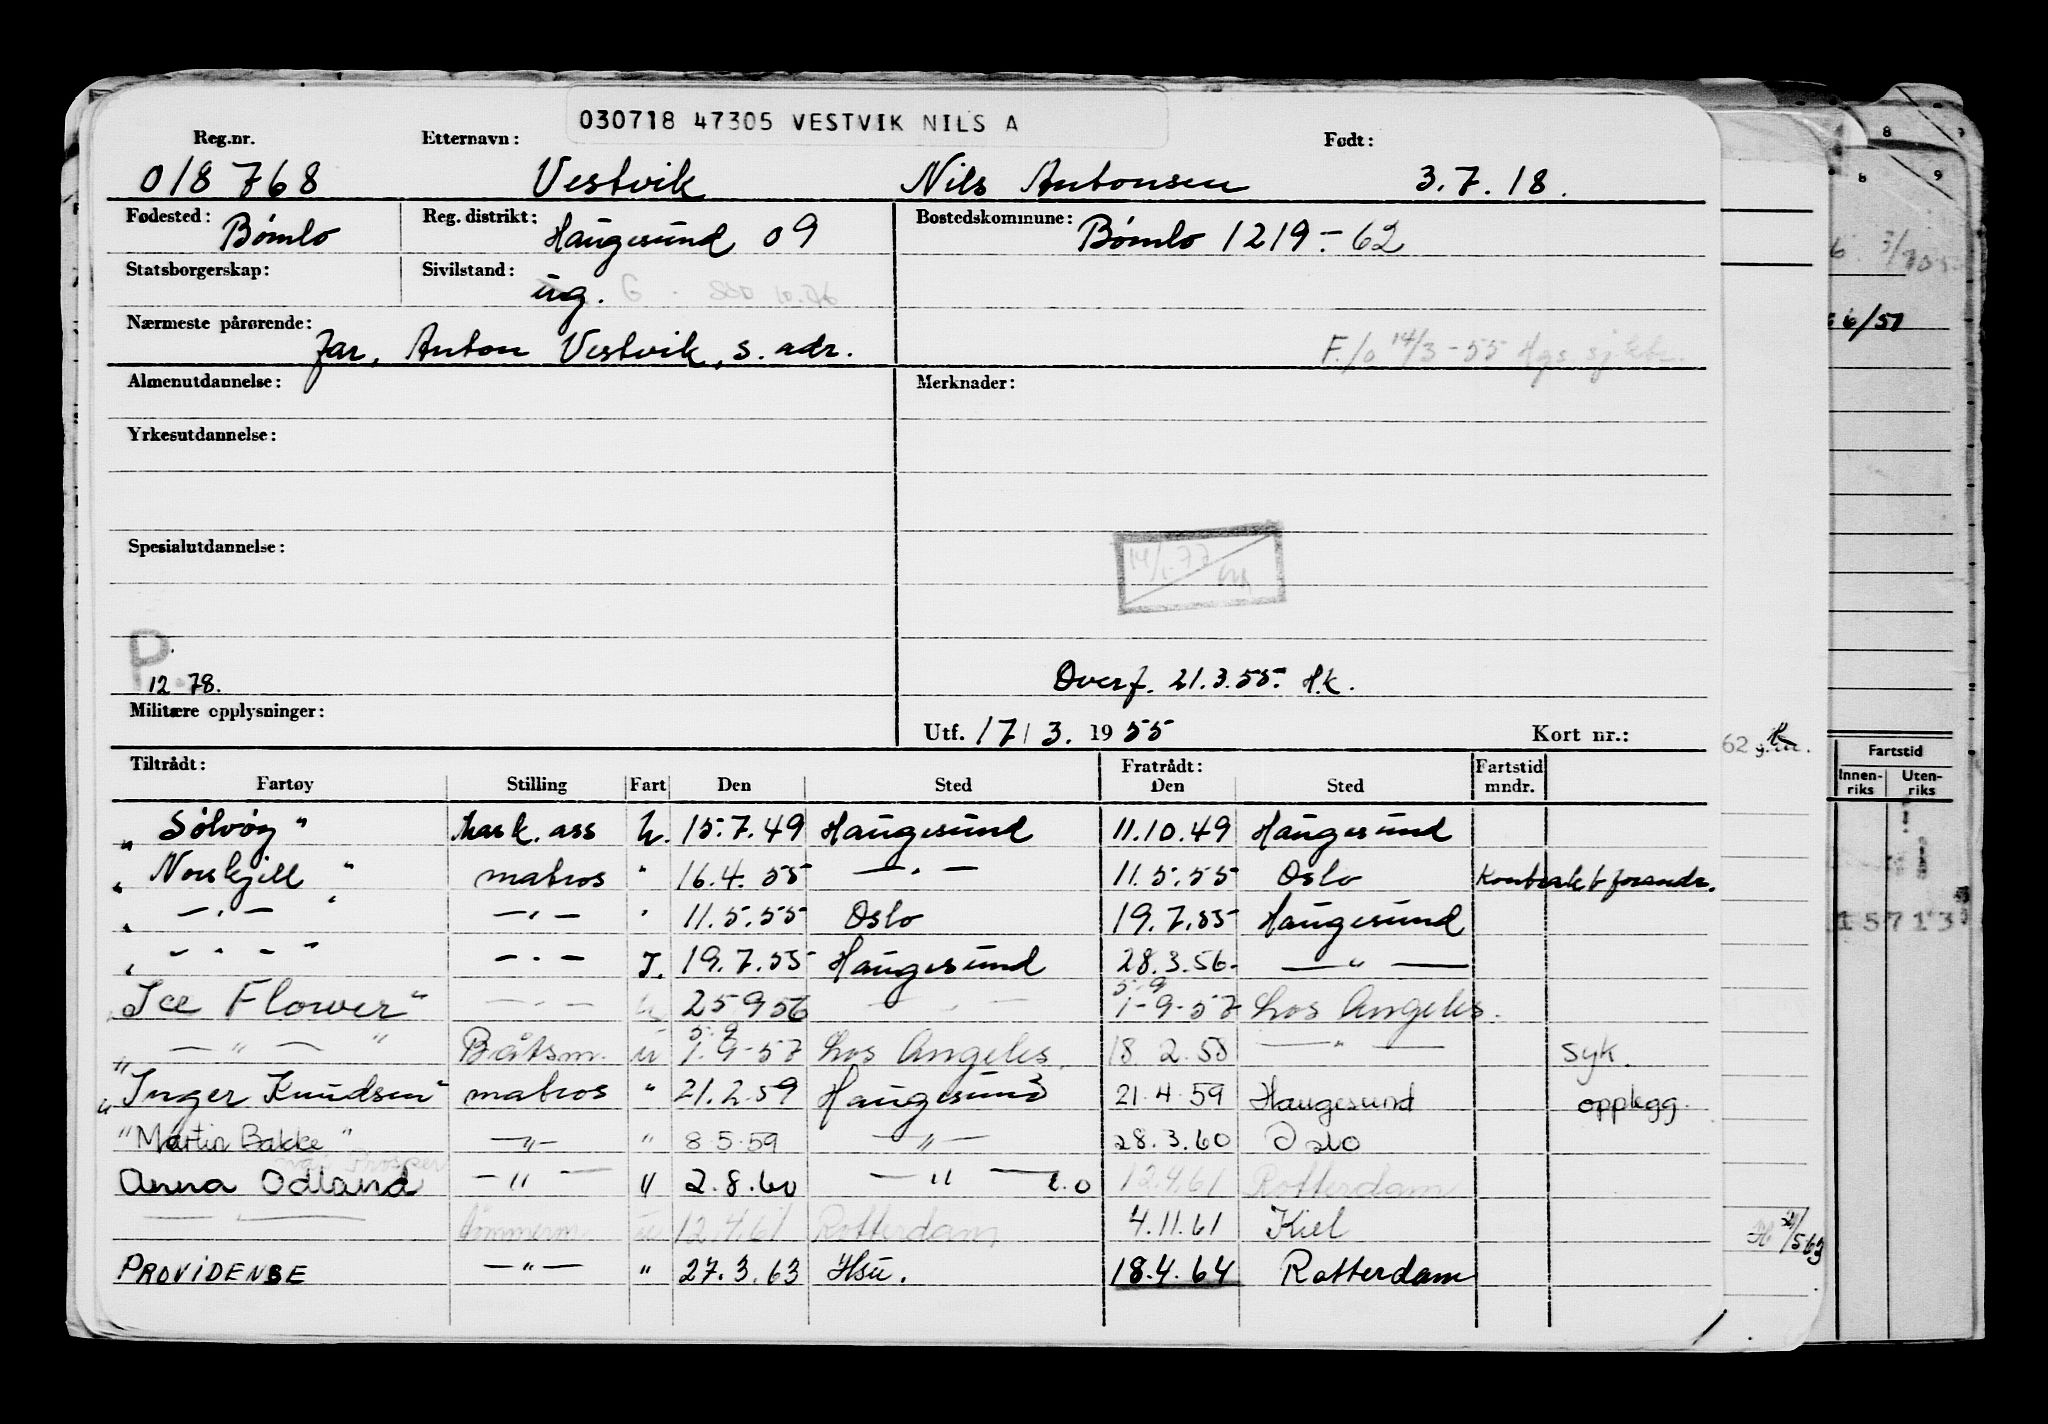 030718 47305 VESTVIK NILS A
Reg.nr. Etternavn: Født:
018768 Vestvik Nils Antonsen 3.7.18.
Fødested: Bømlo Reg. distrikt: Haugesund 09 Bostedskommune: Bømlo 1219 - 62
Statsborgerskap: Sivilstand: ug. G
Nærmeste pårørende: far, Anton Vestvik, s. adr. F./o 14/3-55 Hgs.
Almenutdannelse: Merknader:
Yrkesutdannelse:
Spesialutdannelse:
14/1.77
P.
12 78. Overf. 21.3.55. H.k.
Militære opplysninger: Utf. 17/3. 1955 Kort nr.:
Tiltrådt: Fratrådt: Fartstid
Fartøy Stilling Fart Den Sted Den Sted mndr.
„ Sølvøy " mask. ass h. 15.7.49 Haugesund 11.10.49 Haugesund
„ Norskjell " matros " 16.4.55 — " — 11.5.55 Oslo Kontrakt forandr.
„ — " — " — " — " 11.5.55 Oslo 19.7.55 Haugesund
„ — " — " — " — I. 19.7.55 Haugesund 28.3.56 — " —
„ Ice Flower " — " — u 25 9 56 — " — 5-9 1-9-57 Los Angeles.
„ — " — " Båtsm. u 5.9 1.9-57 Los Angeles. 18.2.58 — " — syk.
„ Inger Knudsen " matros " 21.2.59 Haugesund 21.4.59 Haugesund opplegg.
"Martin Bakke" — " — " 8.5.59 — " — 28.3.60 Oslo
Prosper
Anna Odland — " — " 2.8.60 — " — 12.4.61 Rotterdam
— " — tømmerm. u 12.4.61 Rotterdam 4.11.61 Kiel
PROVIDENSE — " — " 27.3.63 Hsu. 18.4.64 Rotterdam
8
8 9
6/51
62
Fartstid
Innen- Uten-
riks riks
15713